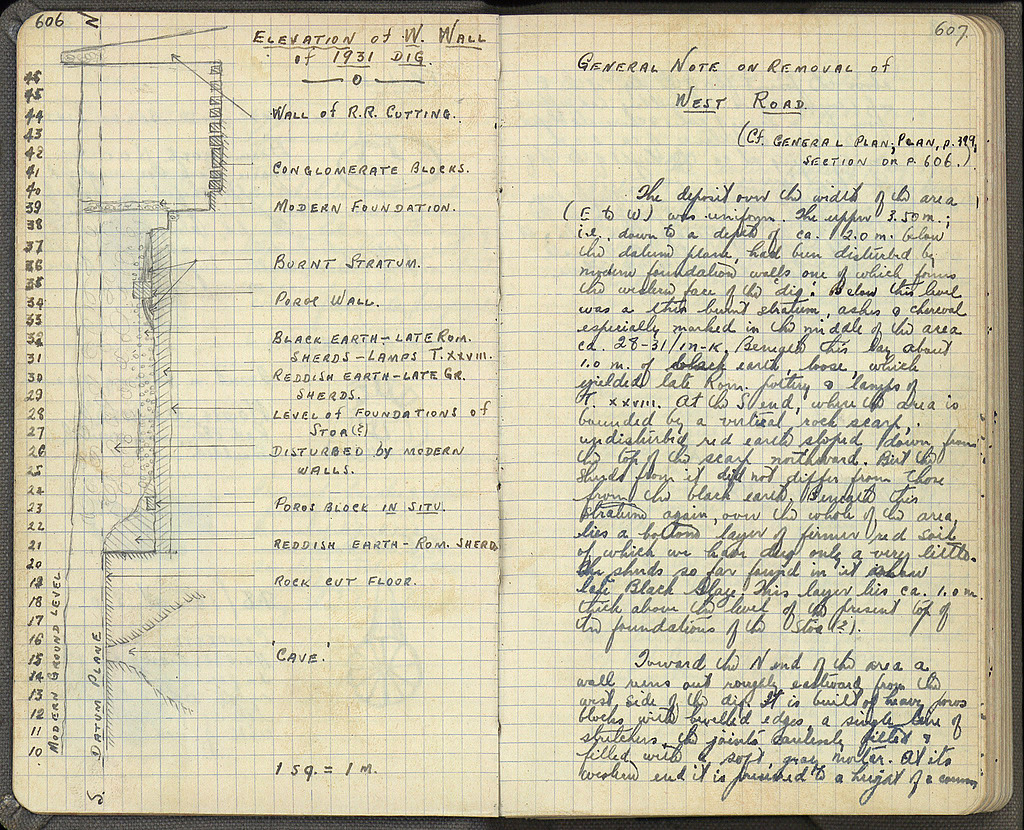 606
N
ELEVATION of W. WALL
of 1931 DIG.
WALL of R.R. CUTTING.
CONGLOMERATE BLOCKS.
MODERN FOUNDATION.
BURNT STRATUM.
POROS WALL.
BLACK EARTH - LATE ROM.
SHERDS - LAMPS T. XXVIII.
REDDISH EARTH - LATE GR.
SHERDS.
LEVEL OF FOUNDATIONS of
STOA (?)
DISTURBED by MODERN
WALLS.
POROS BLOCK IN SITU.
REDDISH EARTH - ROM. SHERD
ROCK CUT FLOOR.
'CAVE.'
1 SQ. = 1 M.
46
45
44
43
42
41
40
39
38
37
36
35
34
33
32
31
30
29
28
27
26
25
24
23
22
21
20
19
18
17
16
15
14
13
12
11
10
MODERN GROUND LEVEL
DATUM PLANE
S.
607
GENERAL NOTE ON REMOVAL of
WEST ROAD
(Cf. GENERAL PLAN, PLAN, p. 399,
SECTION ON P. 606.)
The deposit over the width of the area
(E to W) was uniform. The upper 3.50 m.;
i.e. down to a depth of ca. 2.0 m. below
the datum plane, had been disturbed by
modern foundation walls one of which forms
the western face of the 'dig'. Below this level
was a thin burnt stratum, ashes & charcoal
especially marked in the middle of the area
ca. 28-31/ΙΗ-Κ. Beneath this lay about
1.0 m. of black earth, loose, which
yielded late Rom. pottery & lamps of
T. XXVIII. At the S end, where the area is
bounded by a vertical rock scarp,
undisturbed red earth sloped down from
the top of the scarp northward. But the
sherds from it did not differ from those
from the black earth. Beneath this
stratum again, over the whole of the area,
lies a bottom layer of firmer red soil
of which we have dug only a very little.
The sherds so far found in it show
late Black Glaze. This layer lies ca. 1.0 m.
thick above the level of the present top of
the foundations of the Stoa (?).
Toward the N end of the area a
wall runs out roughly eastward from the
west side of the dig. It is built of heavy poros
blocks with bevelled edges a single line of
stretchers, the joints carelessly fitted &
filled with a soft, gray mortar. At its
western end it is preserved to a height of 2 courses